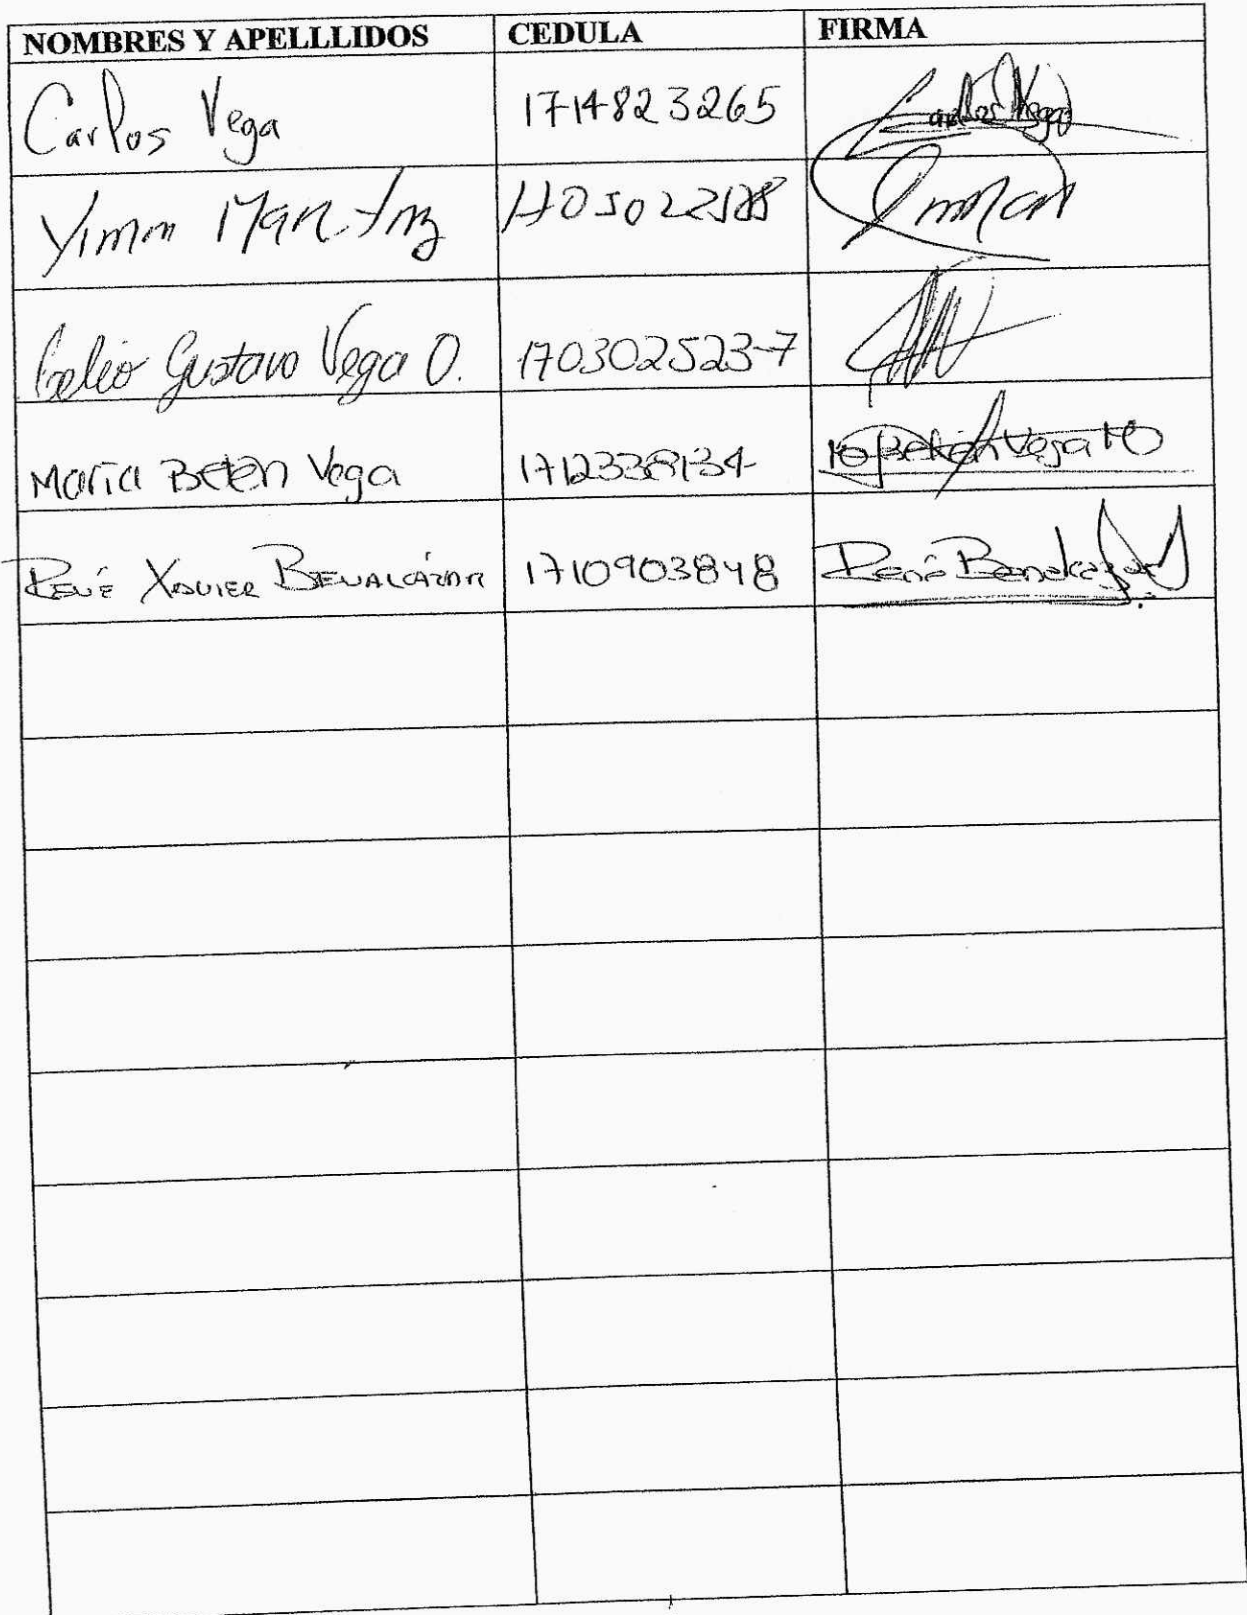 NOMBRES Y APELLLIDOS CEDULA FIRMA
Carlos Vega 1714823265 Carlos Vega
Yimm
Gustavo Vega O. 170302523-7
María Belén Vega 1712338134 Belén Vega
René Xavier Benalcázar 1710903848 René Benalcázar